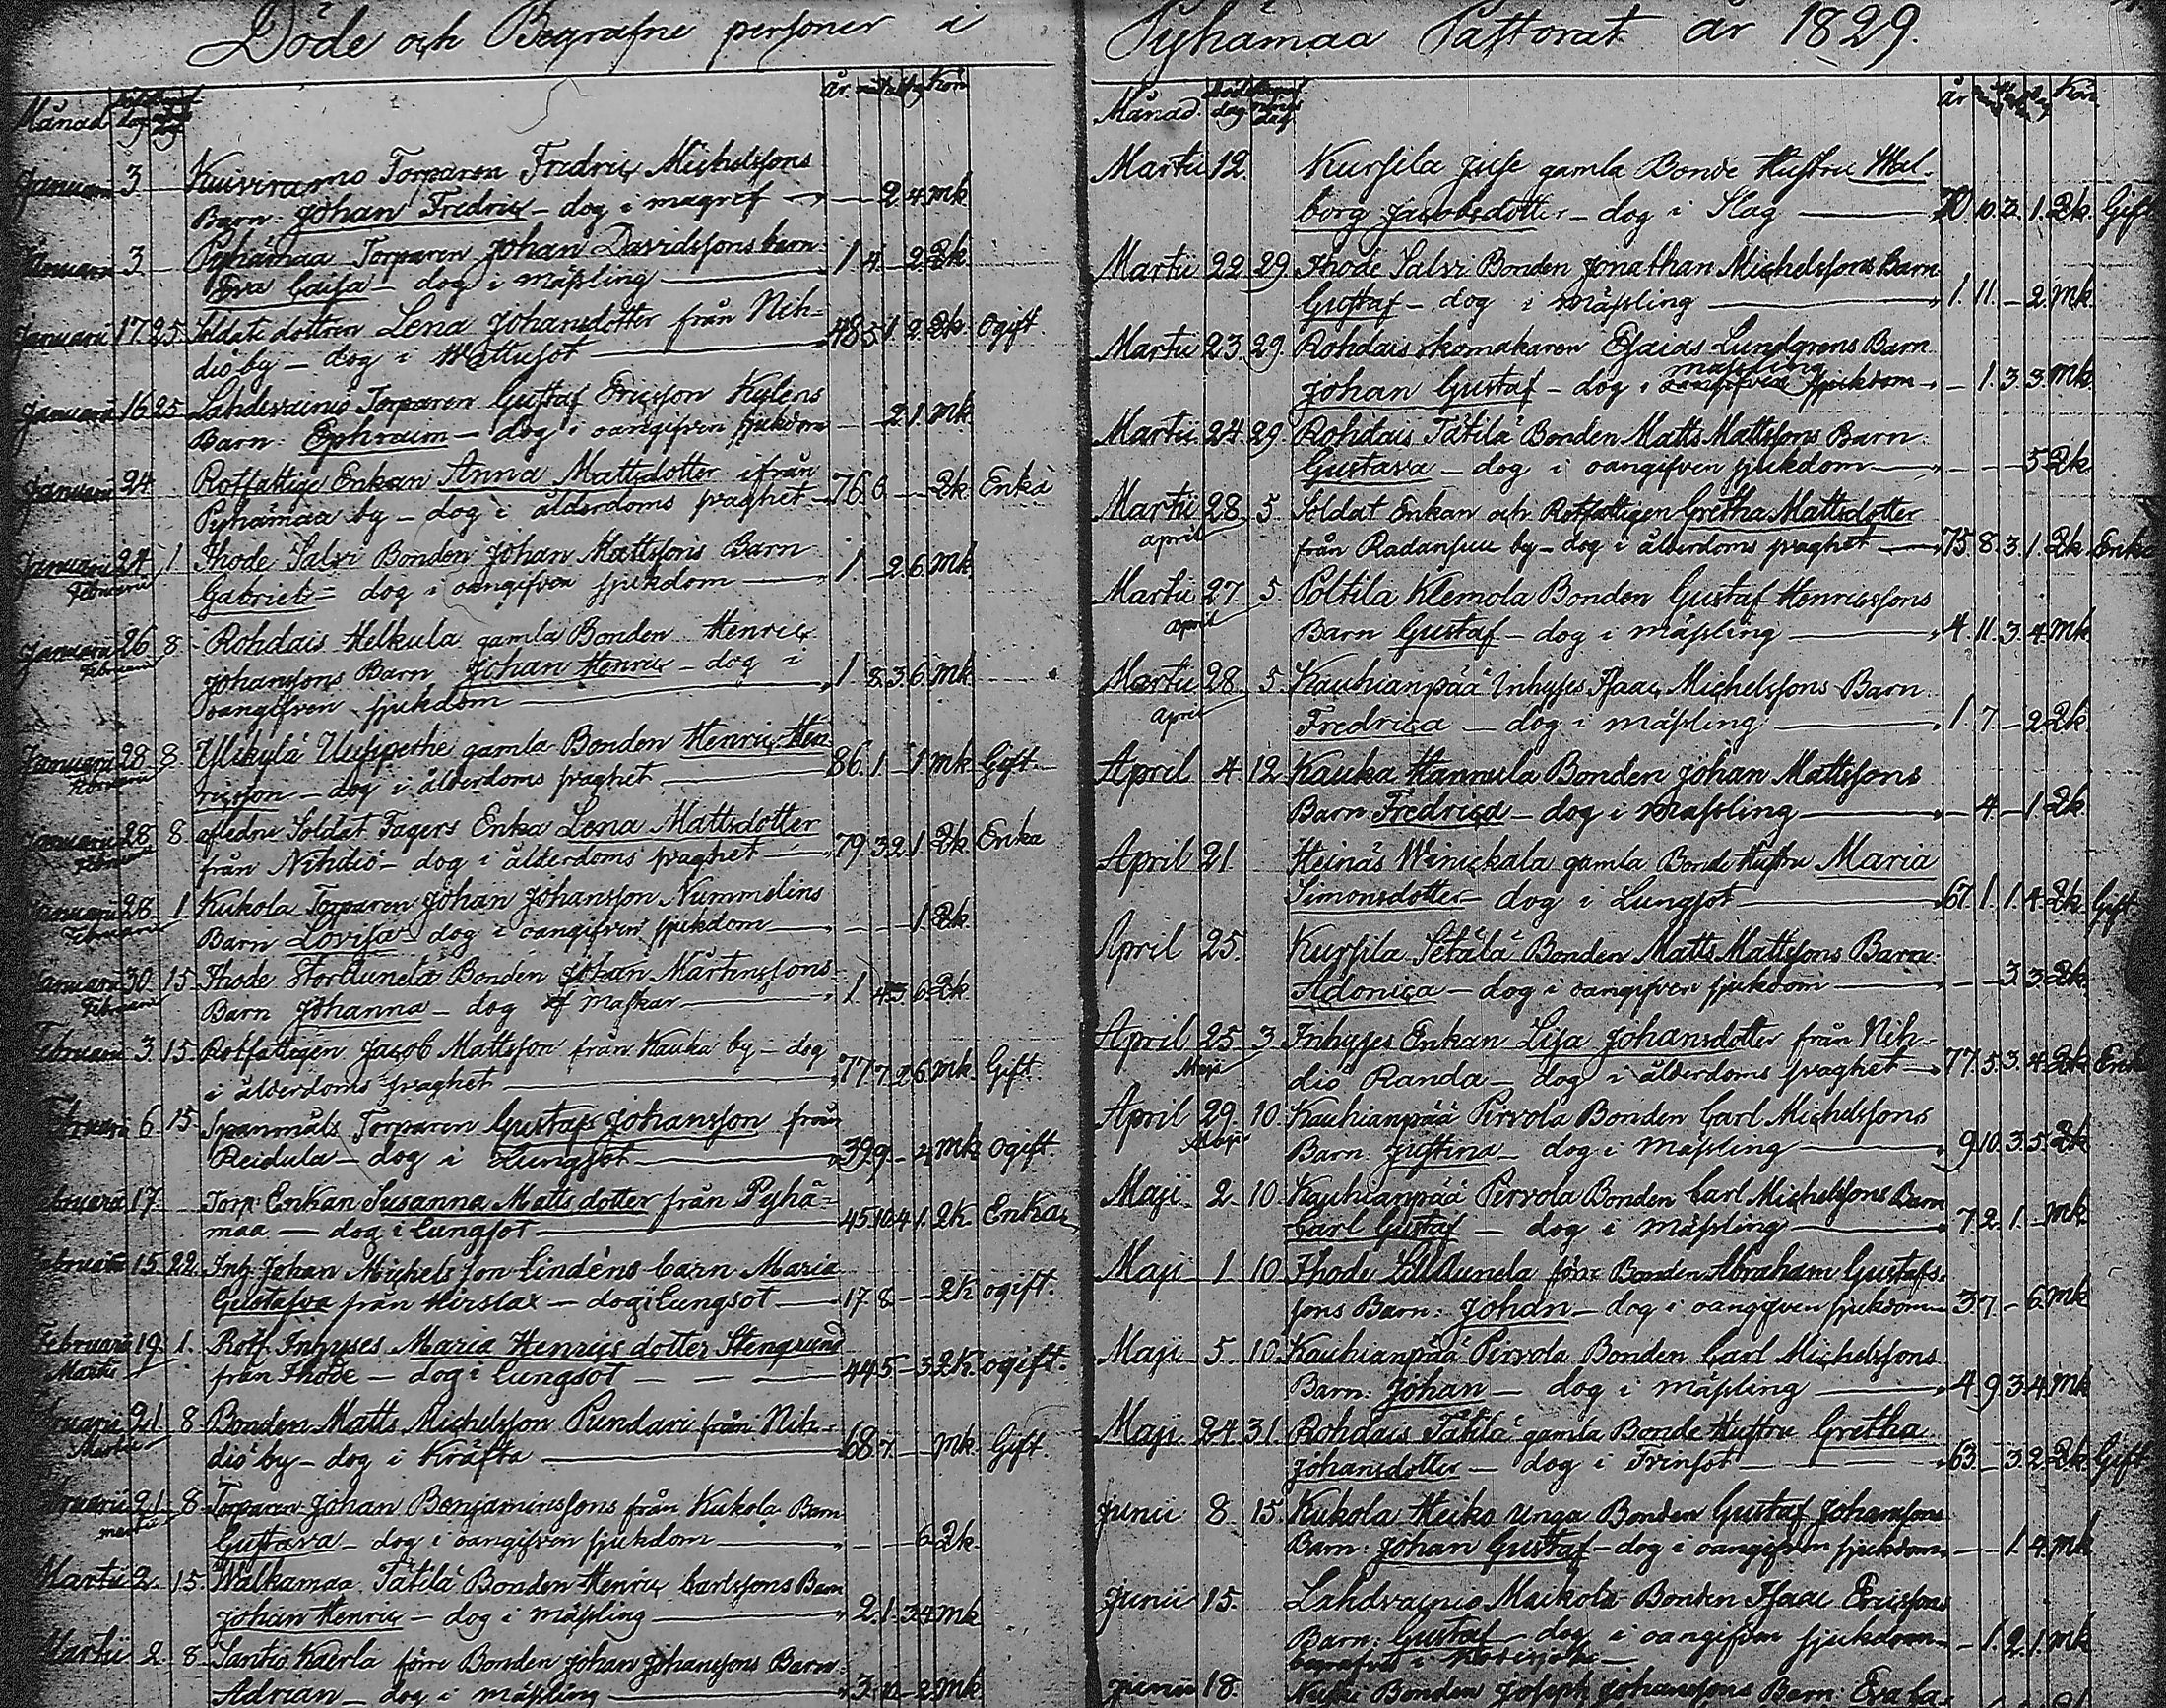 Döde och Begrafne personer i
Månad dag dag År Kön
Januarii 3 Kuiviramo Torparen Fredric Michelssons
Barn: Johan Fredric – dog i magref — 2 4 mk
Januarii 3 Pyhämaa Torparen Johan Davidssons barn
Eva Caisa – dog i mässling — 1. 4. – 2. 2k.
Januarii 17. 25. Soldats dottren Lena Johansdotter från Nih-
diö by – dog i Wattusot — 48 5 1 2 2k. Ogift.
Januarii 16 25 Lahdevainio Torparen Gustaf Ericsson Kyléns
Barn: Ephraim – dog i oangifven sjukdom — 2. 1. mk.
Januarii 24 Rotfattige Enkan Anna Mattsdotter ifrån
Pyhämaa by – dog i ålderdoms svaghet – 76 – – 2k. Enka
Januarii 24 1 Ihode Salvi Bonden Johan Mattssons Barn
Februarii Gabriel – dog i oangifven sjukdom — 1. – 2 6. mk.
Januarii 26 8 Rohdais Helkula gamla Bonden Henric
Februarii Johanssons Barn Johan Henric – dog i
oangifven sjukdom — 1 8. 3. 6. mk.
Januarii 28 8. Ylikylä Uusipethe gamla Bonden Henric Hen-
Februarii ricsson – dog i ålderdoms svaghet — 86. 1. – 1. mk Gift.
Januarii 28 8. afledne Soldat Fagers Enka Lena Mattsdotter
Februarii från Nihdiö – dog i ålderdoms svaghet — 79. 3 2 1. 2k. Enka
Januarii 28 1 Kukola Torparen Johan Johansson Nummelins
Februarii Barn Lovisa – dog i oangifven sjukdom — 1 2k.
Januarii 30. 15. Ihode Storllunela Bonden Johan Mårtenssons
Februarii Barn Johanna – dog af maskar — 1. 4 3. 6 2k.
Februarii 3. 15. Rotfattigen Jacob Mattsson från Kauka by – dog
i ålderdoms svaghet — 77. 7. 2 6. mk. Gift.
Februarii 6 15 Spanmåls Torparen Gustaf Johansson från
Reidula – dog i Lungsot — 39. 9. – 4 mk ogift.
Februarii 17. Torp: Enkan Susanna Matts dotter från Pyhä-
maa – dog i Lungsot — 45 10 4 1. 2K. Enka
Februarii 15 22. Inh Johan Michels son Lindéns barn Maria
Gustafva från Hirslax – dog i Lungsot — 17. 8 – – 2K ogift.
Februarii 19. 1. Rotf. Inhyses Maria Henrics dotter Stengrund
Martii från Ihode – dog i Lungsot — 44 5 – 3 2K. ogift.
Februarii 21 8 Bonden Matts Michelsson Pundari från Nih-
Martii diö by – dog i Kräfta — 68 7. – – mk. Gift.
Februarii 21 8 Torparen Johan Benjaminssons från Kukola Barn
Martii Gustava – dog i oangifven sjukdom — 6 2k.
Martii 2. 15. Walkamaa Tätilä Bonden Henric Carlssons Barn
Johan Henric – dog i mässling — 2. 1. 3 4 mk
Martii 2 8 Santio Kaerla förre Bonden Johan Johanssons Barn
Adrian – dog i mässling — 3. 10 – 2 mk
Pyhämaa Pastorat år 1829.
Månad dag dag år Kön
Martii 12. Kursila Juse gamla Bonde Hustru Wal-
borg Jacobsdotter – dog i Slag — 70. 10. 2. 1. 2k. Gift
Martii 22 29 Ihode Salvi Bonden Jonathan Michelssons Barn
Gustaf – dog i mässling — 1. 11. – 2. mk.
Martii 23. 29. Rohdais skomakaren Esaias Lundgrens Barn
mässling
Johan Gustaf – dog i oangifven sjukdom – 1. 3. 3. mk.
Martii 24 29. Rohdais Tätilä Bonden Matts Mattssons Barn:
Gustava – dog i oangifven sjukdom — 5 2k
Martii 28. 5. Soldat Enkan och Rotfattigen Gretha Mattsdotter
april från Radansuu by – dog i ålderdoms svaghet — 75. 8. 3. 1. 2k Enka
Martii 27 5 Poltila Klemola Bonden Gustaf Henricssons
april Barn Gustaf – dog i mässling — 4. 11. 3. 4. mk
Martii 28. 5. Kauhianpää Inhyses Isaac Michelssons Barn:
april Fredrica – dog i mässling — 1. 7. – 2 2k
April 4 12 Kauka Hannula Bonden Johan Mattssons
Barn Fredrica – dog i mässling — 4. – 1. 2k
April 21 Heinäs Winickala gamla Bonde Hustru Maria
Simonsdotter – dog i Lungsot — 67 1. 1. 4. 2k Gift
April 25. Kursila Setälä Bonden Matts Mattssons Barn:
Adonica – dog i oangifven sjukdom — 3. 3. 2k
April 25 3 Inhyses Enkan Lisa Johansdotter från Nih-
Maji diö Randa – dog i ålderdoms svaghet — 77. 5. 3. 4 2k Enka
April 29. 10. Kauhianpää Pirvola Bonden Carl Michelssons
Maji Barn: Justina – dog i mässling — 9. 10. 3. 5. 2k
Maji 2 10 Kauhianpää Pervola Bonden Carl Michelssons Barn
Carl Gustaf – dog i mässling — 7 2. 1. – mk
Maji 1 10 Ihode Lilllunela förre Bonden Abraham Gustafs-
sons Barn: Johan – dog i oangifven sjukdom 3. 7. – 6. mk
Maji 5 10 Kauhianpää Pirvola Bonden Carl Michelssons
Barn: Johan – dog i mässling — 4. 9. 3 4. mk
Maji 24 31 Rohdais Tätilä gamla Bonde Hustru Gretha
Johansdotter – dog i Trensot — 63. – 3. 2. 2k Gift
Junii 8 15. Kukola Heiko unga Bonden Gustaf Johanssons
Barn: Johan Gustaf – dog i oangifven sjukdom — 1. 4. mk
Junii 15. Lahdvainio Maikola Bonden Isaac Ericssons
Barn: Gustaf – dog i oangifven sjukdom – 1. 2. 1. mk
begrafvet i
Junii 18. Bonden Joseph Johanssons Barn: Eva Ca-